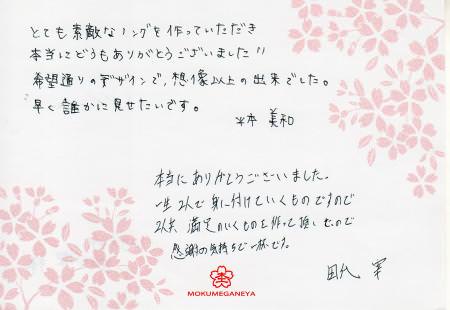 とても素敵なリングを作っていただき
本当にどうもありがとうございました!!
希望通りのデザインで、想像以上の出来でした。
早く誰かに見せたいです。
美和
本当にありがとうございました。
一生2人で身に付けていくものですので
2人共 満足のいくものを作って頂いたので
感謝の気持ちで一杯です。
田代
MOKUMEGANEYA